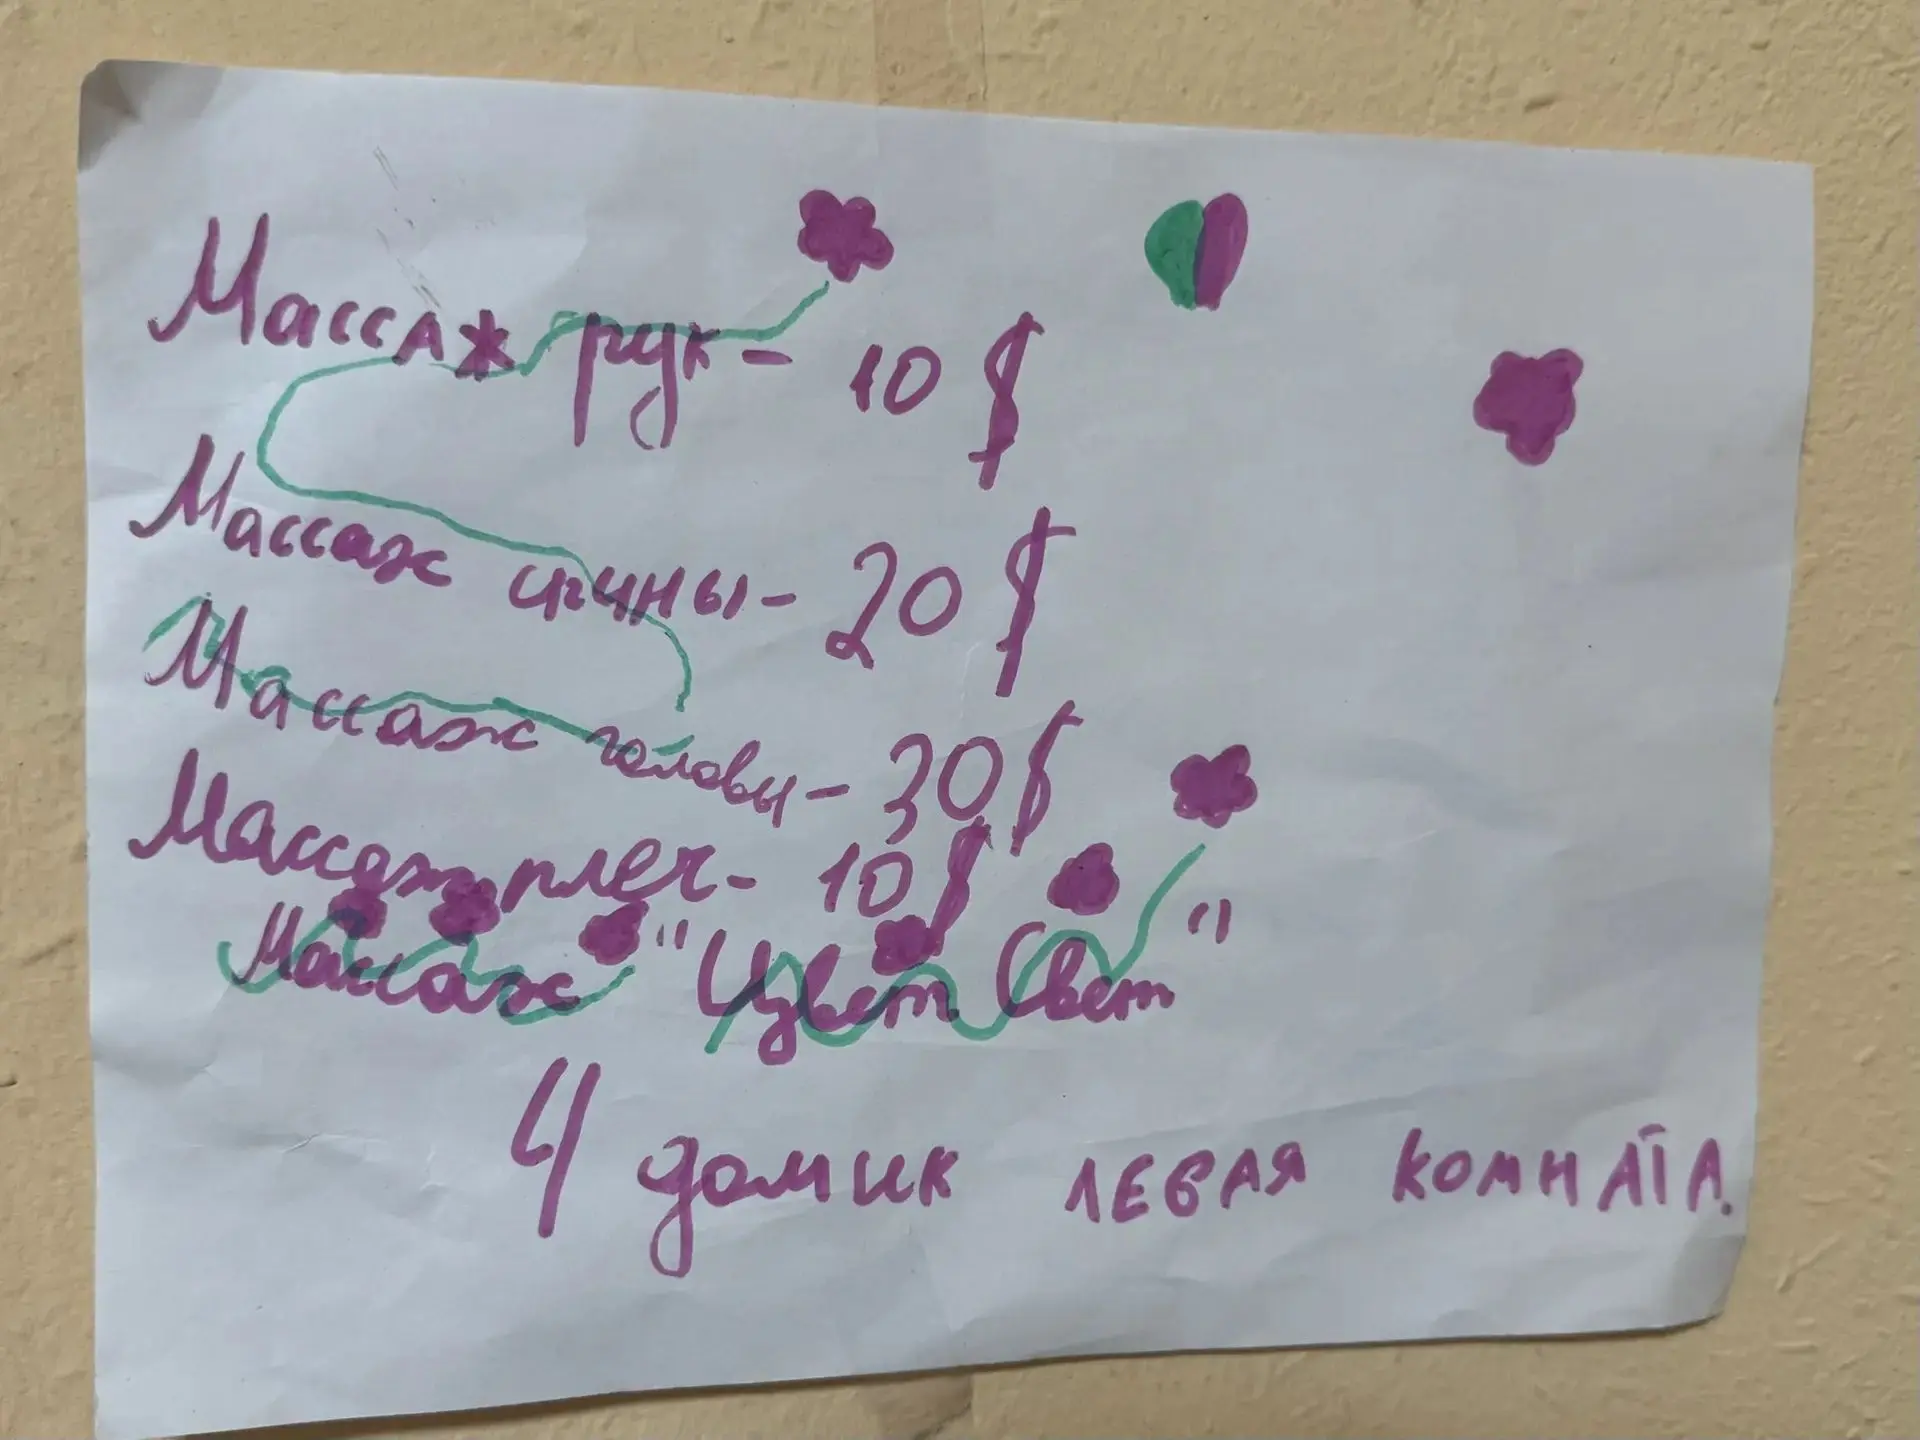 Массаж рук - 10 $
Массаж спины - 20 $
Массаж головы - 30 $
Массаж плеч - 10 $
Массаж "Цвет Свет"
4 домик ЛЕВАЯ КОМНАТА.